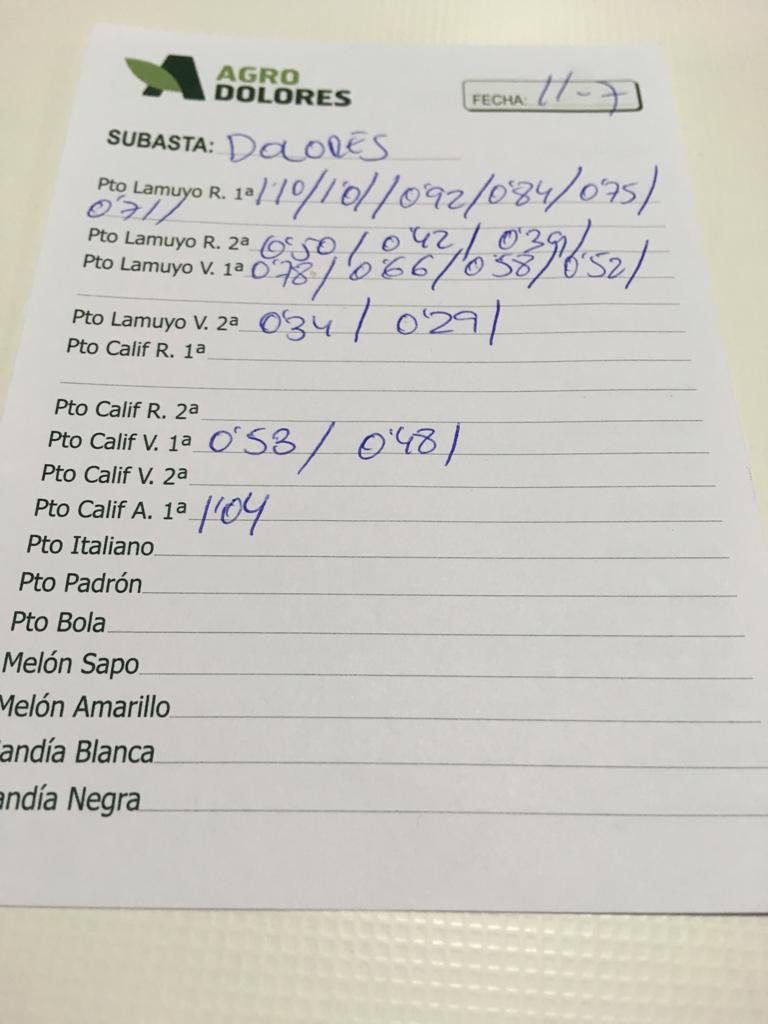 AGRO
DOLORES
FECHA: 11-7
SUBASTA: DOLORES
Pto Lamuyo R. 1ª 1'10/1'01/0'92/0'84/0'75/
0'71/
Pto Lamuyo R. 2ª 0'50/0'42/0'39/
Pto Lamuyo V. 1ª 0'78/0'66/0'58/0'52/
Pto Lamuyo V. 2ª 0'34/0'29/
Pto Calif R. 1ª
Pto Calif R. 2ª
Pto Calif V. 1ª 0'53/0'48/
Pto Calif V. 2ª
Pto Calif A. 1ª 1'04
Pto Italiano
Pto Padrón
Pto Bola
Melón Sapo
Melón Amarillo
andía Blanca
andía Negra